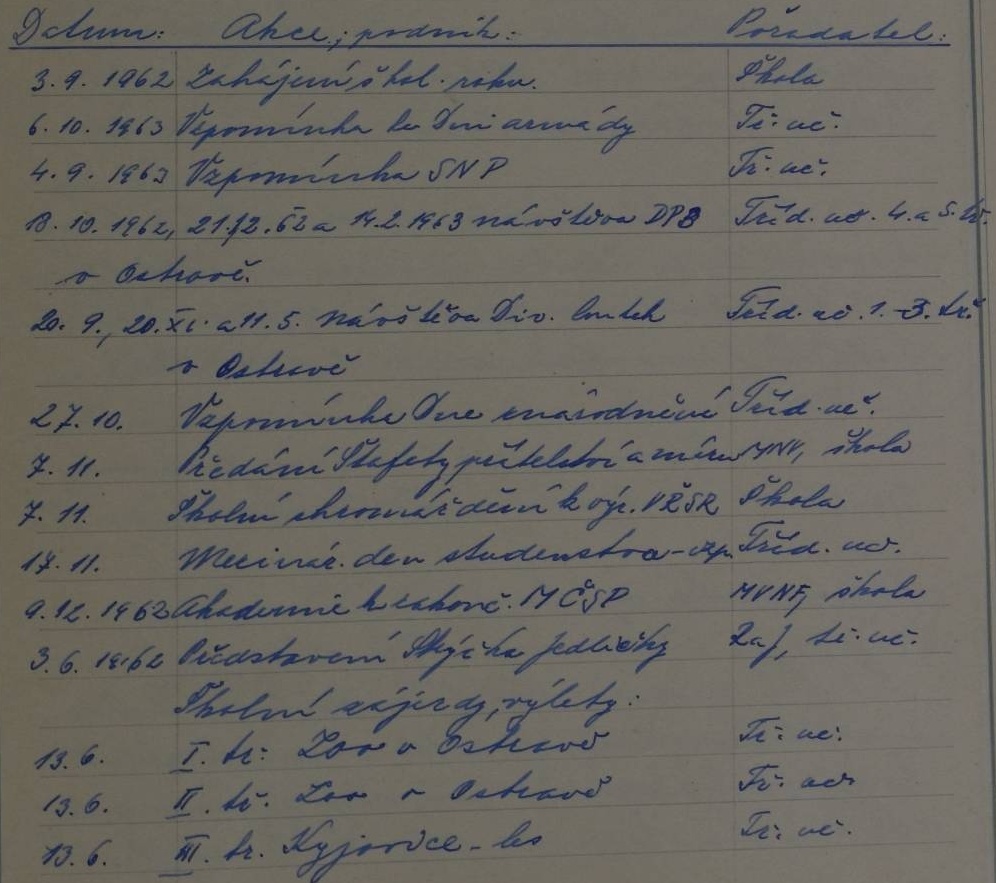 Datum: Akce, podnik: Pořadatel:
3. 9. 1962 Zahájení škol. roku. Škola
6. 10. 1963 Vzpomínka ke Dni armády Tř. uč.
4. 9. 1963 Vzpomínka SNP Tř. uč.
18. 10. 1962, 21.12.62 a 14.2.1963 návštěva DPB Tříd. uč. 4. a 5. tř.
v Ostravě.
20. 9., 20. XI. a 11. 5. návštěva Div. loutek Tříd. uč. 1.-3. tř.
v Ostravě
27. 10. Vzpomínka Dne znárodnění Tříd. uč.
7. 11. Předání Štafety přátelství a míru MNV, škola
7. 11. Školní shromáždění k výr. VŘSR Škola
17. 11. Mezinár. den studenstva - vzp. Tříd. uč.
9. 12. 1962 Akademie k zakonč. MČSP MVNF, škola
3. 6. 1962 Představení Strýčka Jedličky tř. uč.
Školní zájezdy, výlety:
13. 6. I. tř. Zoo v Ostravě Tř. uč.
13. 6. II. tř. Zoo v Ostravě Tř. uč.
13. 6. III. tř. Kyjovice - les Tř. uč.